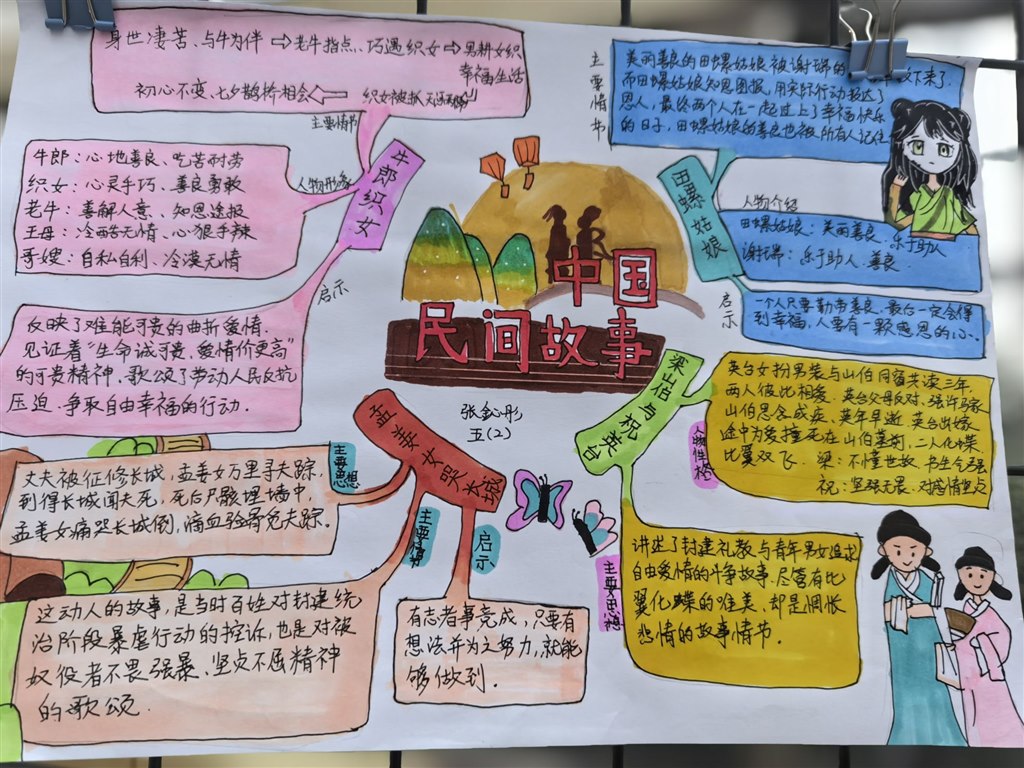 中国
民间故事
张
五(2)
牛郎织女
主要情节
身世凄苦、与牛为伴⇨老牛指点、巧遇织女⇨男耕女织
幸福生活
初心不变、七夕鹊桥相会⇦ 织女被抓
人物形象
牛郎:心地善良、吃苦耐劳
织女:心灵手巧、善良勇敢
老牛:善解人意、知恩途报
王母:冷酷无情、心狠手辣
哥嫂:自私自利、冷漠无情
启示
反映了难能可贵的曲折爱情.
见证着“生命诚可贵,爱情价更高”
的可贵精神,歌颂了劳动人民反抗
压迫.争取自由幸福的行动.
田螺姑娘
主要情节
美丽善良的田螺姑娘被谢瑞的 下来了.
而田螺姑娘知恩图报,用实际行动报达了
恩人,最终两个人在一起过上了幸福快乐
的日子,田螺姑娘的善良也被所有人记住
人物介绍
田螺姑娘:美丽善良.乐于助人
谢瑞:乐于助人.善良.
启示
一个人只要勤劳善良.最后一定会得
到幸福,人要有一颗感恩的心.
孟姜女哭长城
主要思想
丈夫被征修长城,孟姜女万里寻夫踪.
到得长城闻夫死,死后尸骸埋墙中.
孟姜女痛哭长城倒,滴血验骨觅夫踪.
主要情节
这动人的故事,是当时百姓对封建统
治阶段暴虐行动的控诉,也是对被
奴役者不畏强暴、坚贞不屈精神
的歌颂.
启示
有志者事竟成,只要有
想法并为之努力,就能
够做到.
梁山伯与祝英台
人物性格
英台女扮男装与山伯同窗共读三年.
两人彼此相爱.英台父母反对,强许马家
山伯思念成疾、英年早逝.英台出嫁
途中为爱撞死在山伯墓前,二人化蝶
比翼双飞. 梁:不懂世故.书生气强
祝:坚强无畏.对感情坚贞
主要思想
讲述了封建礼教与青年男女追求
自由爱情的斗争故事.尽管有比
翼化蝶的唯美、却是惆怅
悲情的故事情节.